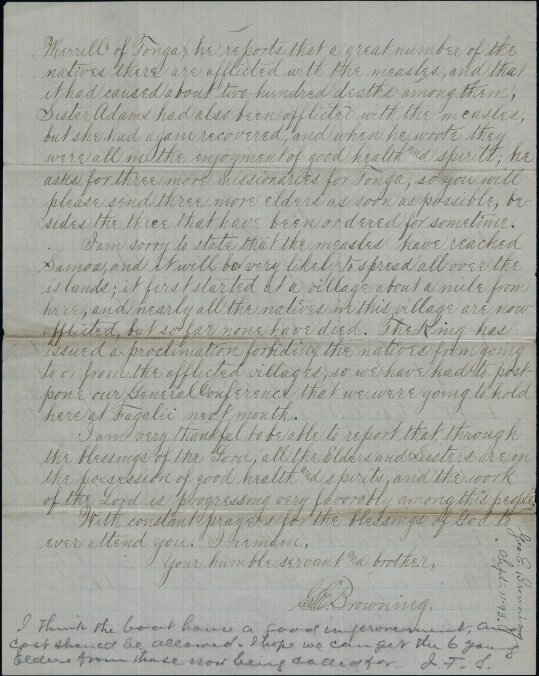 Merrill of Tonga, he reports that a great number of the
natives there are afflicted with the measles, and that
it had caused about two hundred deaths among them,
Sister Adams had also been afflicted with the measles,
but she had again recovered, and when he wrote they
were all in the enjoyment of good health and spirits; he
asks for three more missionaries for Tonga, so you will
please send three more elders as soon as possible, be-
sides the three that have been ordered for sometime.
I am sorry to state that the measles have reached
Samoa, and it will be very likely to spread all over the
islands; it first started at a village about a mile from
here, and nearly all the natives in this village are now
afflicted, but so far none have died. The King has
issued a proclimation forbiding the natives from going
to or from the afflicted villages, so we have had to post-
pone our General Conference that we were going to hold
here at Fagalii next month.
I am very thankful to be able to report that through
the blessings of the Lord, all the Elders and Sisters are in
the possession of good health and spirits, and the work
of the Lord is progressing very favorably among this people.
With constant prayers for the blessings of God to
ever attend you. I remain,
Your humble servant and brother,
G. E. Browning.
I think the boat house a good improvement, and
cost should be allowed. I hope we can get the 6 young
Elders from those now being called for. J. F. S.
Geo. E. Browning
Sept. 1893.